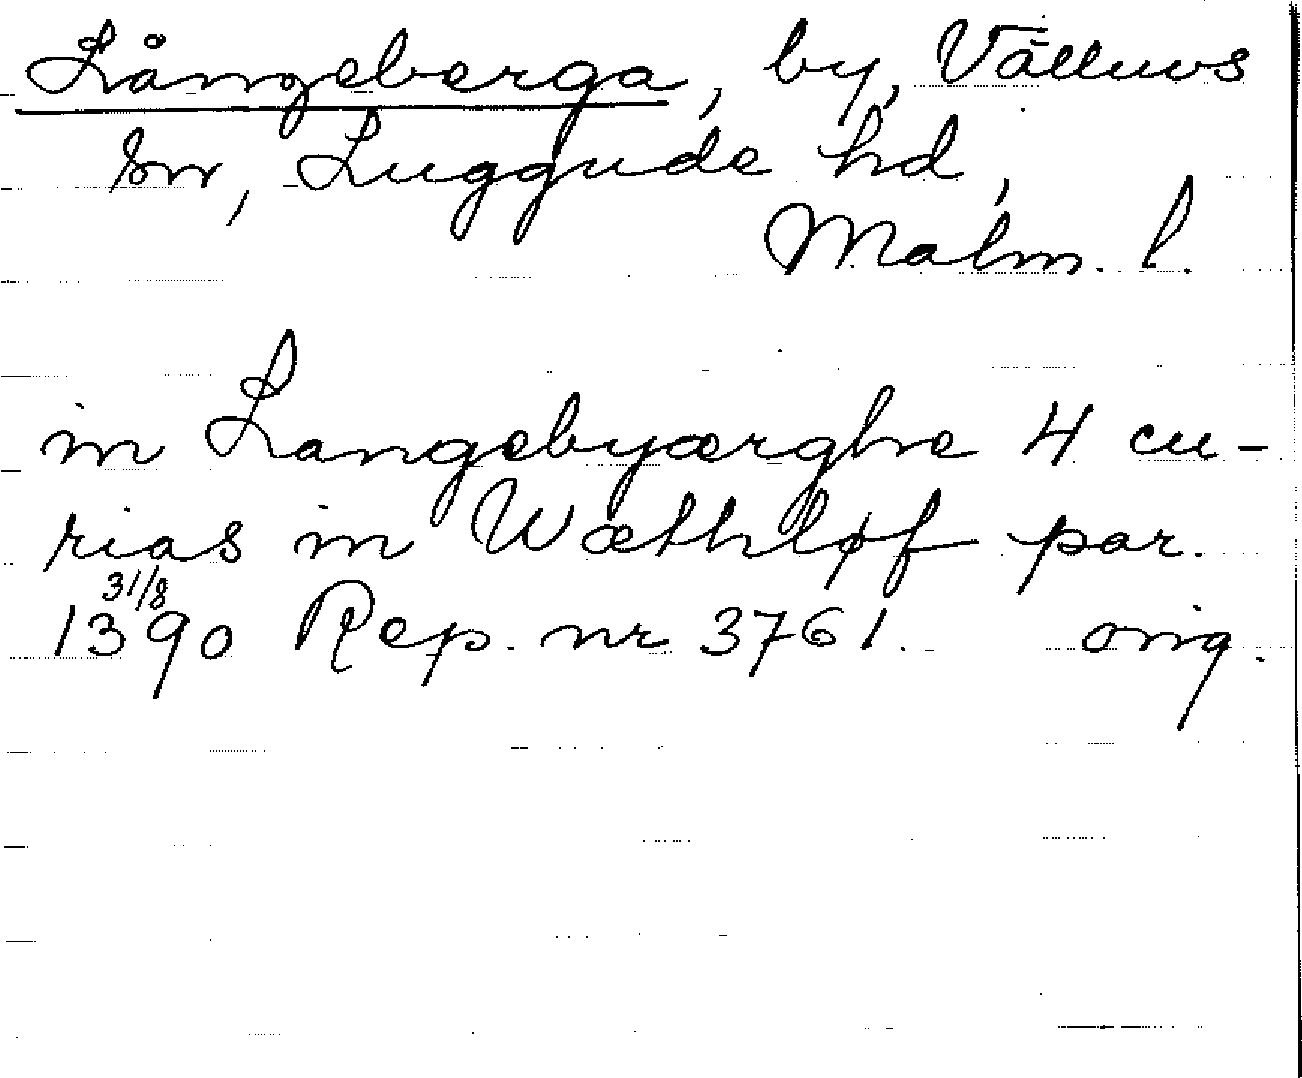 Långeberga, by, Välluvs
sn, Luggude hd,
Malm. l.
in Langebyærghe 4 cu-
rias in Wæthløf par.
31/8
1390 Rep. nr 3761. orig.